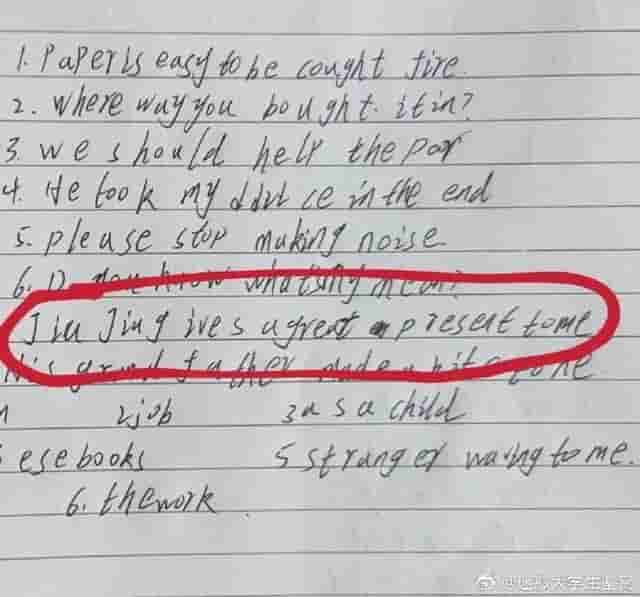 1. Paper is easy to be cought fire.
2. Where way you bought it in?
3. we should help the poor
4. He took my advice in the end
5. please stop making noise
6. Do you know what's my mean?
Jiu Jing ives a great present to me
His grandfather made a
2 job 3 as a child
ese books 5 stranger waving to me.
6. the work
大学生